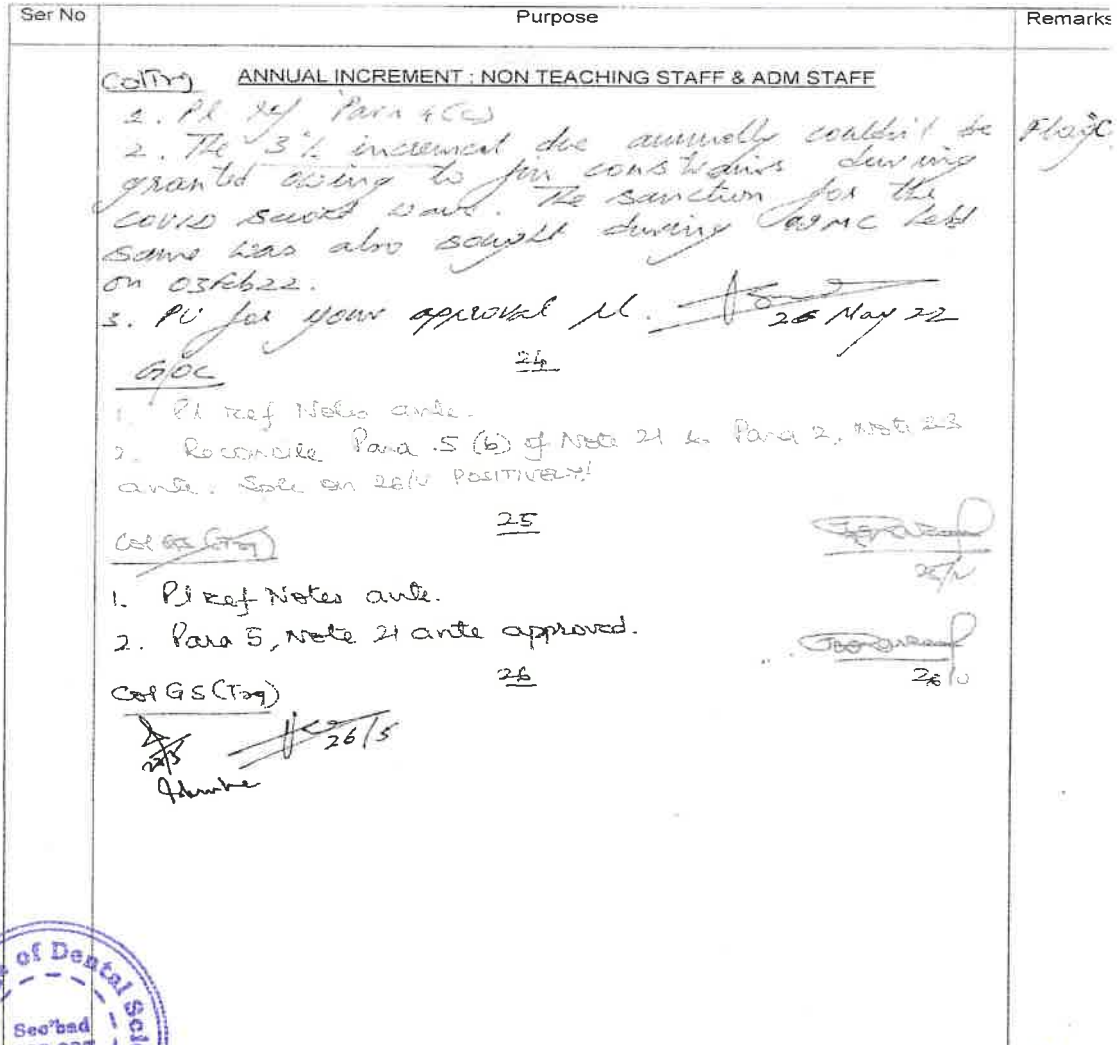 Ser No Purpose Remarks
Col Trg ANNUAL INCREMENT : NON TEACHING STAFF & ADM STAFF
1. Pl ref Para 4(c) Flag 'C'
2. The 3% increment due annually couldn't be
granted owing to fin constrains during
covid second wave. The sanction for the
same was also sought during held
on 03 Feb 22.
3. PU for your approval pl. 26 May 22
GOC 24
1. Pl ref Notes ante.
2. Reconcile Para 5 (b) of Note 21 & Para 2, Note 23
ante. Spk on 26/V POSITIVELY!
25
Col GS (Trg)
25/V
1. Pl ref Notes ante.
2. Para 5, Note 21 ante approved.
26
26/V
Col GS (Trg)
26/5
of Dental Scie
Sec'bad